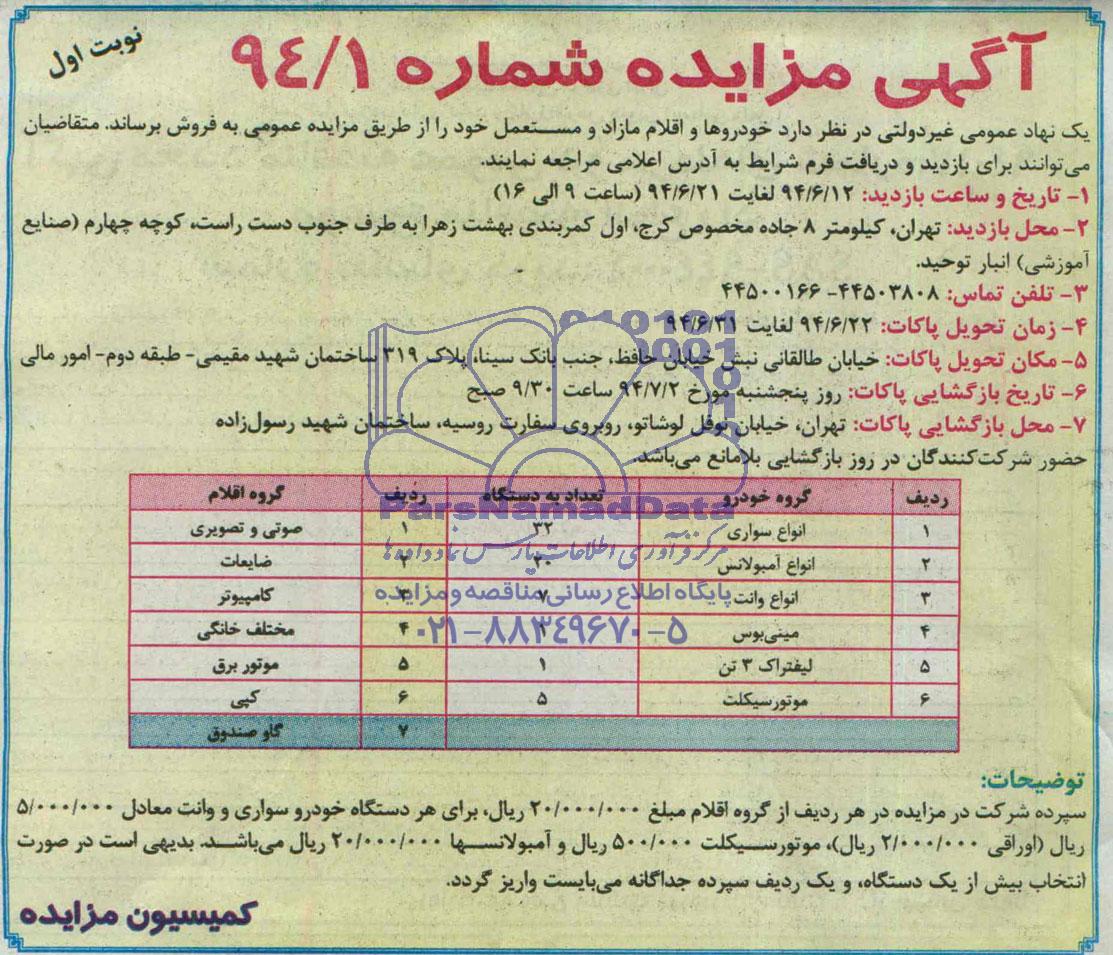 آگهی مزایده شماره ۹۴/۱
نوبت اول
یک نهاد عمومی غیردولتی در نظر دارد خودروها و اقلام مازاد و مستعمل خود را از طریق مزایده عمومی به فروش برساند. متقاضیان
می‌توانند برای بازدید و دریافت فرم شرایط به آدرس اعلامی مراجعه نمایند.
۱- تاریخ و ساعت بازدید: ۹۴/۶/۱۲ لغایت ۹۴/۶/۲۱ (ساعت ۹ الی ۱۶)
۲- محل بازدید: تهران، کیلومتر ۸ جاده مخصوص کرج، اول کمربندی بهشت زهرا به طرف جنوب دست راست، کوچه چهارم (صنایع
آموزشی) انبار توحید.
۳- تلفن تماس: ۴۴۵۰۳۸۰۸- ۴۴۵۰۰۱۶۶
۴- زمان تحویل پاکات: ۹۴/۶/۲۲ لغایت ۹۴/۶/۳۱
۵- مکان تحویل پاکات: خیابان طالقانی نبش خیابان حافظ، جنب بانک سینا، پلاک ۳۱۹ ساختمان شهید مقیمی- طبقه دوم- امور مالی
۶- تاریخ بازگشایی پاکات: روز پنجشنبه مورخ ۹۴/۷/۲ ساعت ۹/۳۰ صبح
۷- محل بازگشایی پاکات: تهران، خیابان نوفل لوشاتو، روبروی سفارت روسیه، ساختمان شهید رسول‌زاده
حضور شرکت‌کنندگان در روز بازگشایی بلامانع می‌باشد.
ردیف گروه خودرو تعداد به دستگاه ردیف گروه اقلام
۱ انواع سواری ۳۲ ۱ صوتی و تصویری
۲ انواع آمبولانس ۲۰ ۲ ضایعات
۳ انواع وانت ۷ ۳ کامپیوتر
۴ مینی‌بوس ۱ ۴ مختلف خانگی
۵ لیفتراک ۳ تن ۱ ۵ موتور برق
۶ موتورسیکلت ۵ ۶ کپی
۷ گاو صندوق
ParsNamadData
مرکز فرآوری اطلاعات پارس نماد داده‌ها
پایگاه اطلاع رسانی مناقصه و مزایده
۰۲۱-۸۸۳۴۹۶۷۰-۵
توضیحات:
سپرده شرکت در مزایده در هر ردیف از گروه اقلام مبلغ ۲۰/۰۰۰/۰۰۰ ریال، برای هر دستگاه خودرو سواری و وانت معادل ۵/۰۰۰/۰۰۰
ریال (اوراقی ۲/۰۰۰/۰۰۰ ریال)، موتورسیکلت ۵۰۰/۰۰۰ ریال و آمبولانسها ۲۰/۰۰۰/۰۰۰ ریال می‌باشد. بدیهی است در صورت
انتخاب بیش از یک دستگاه، و یک ردیف سپرده جداگانه می‌بایست واریز گردد.
کمیسیون مزایده